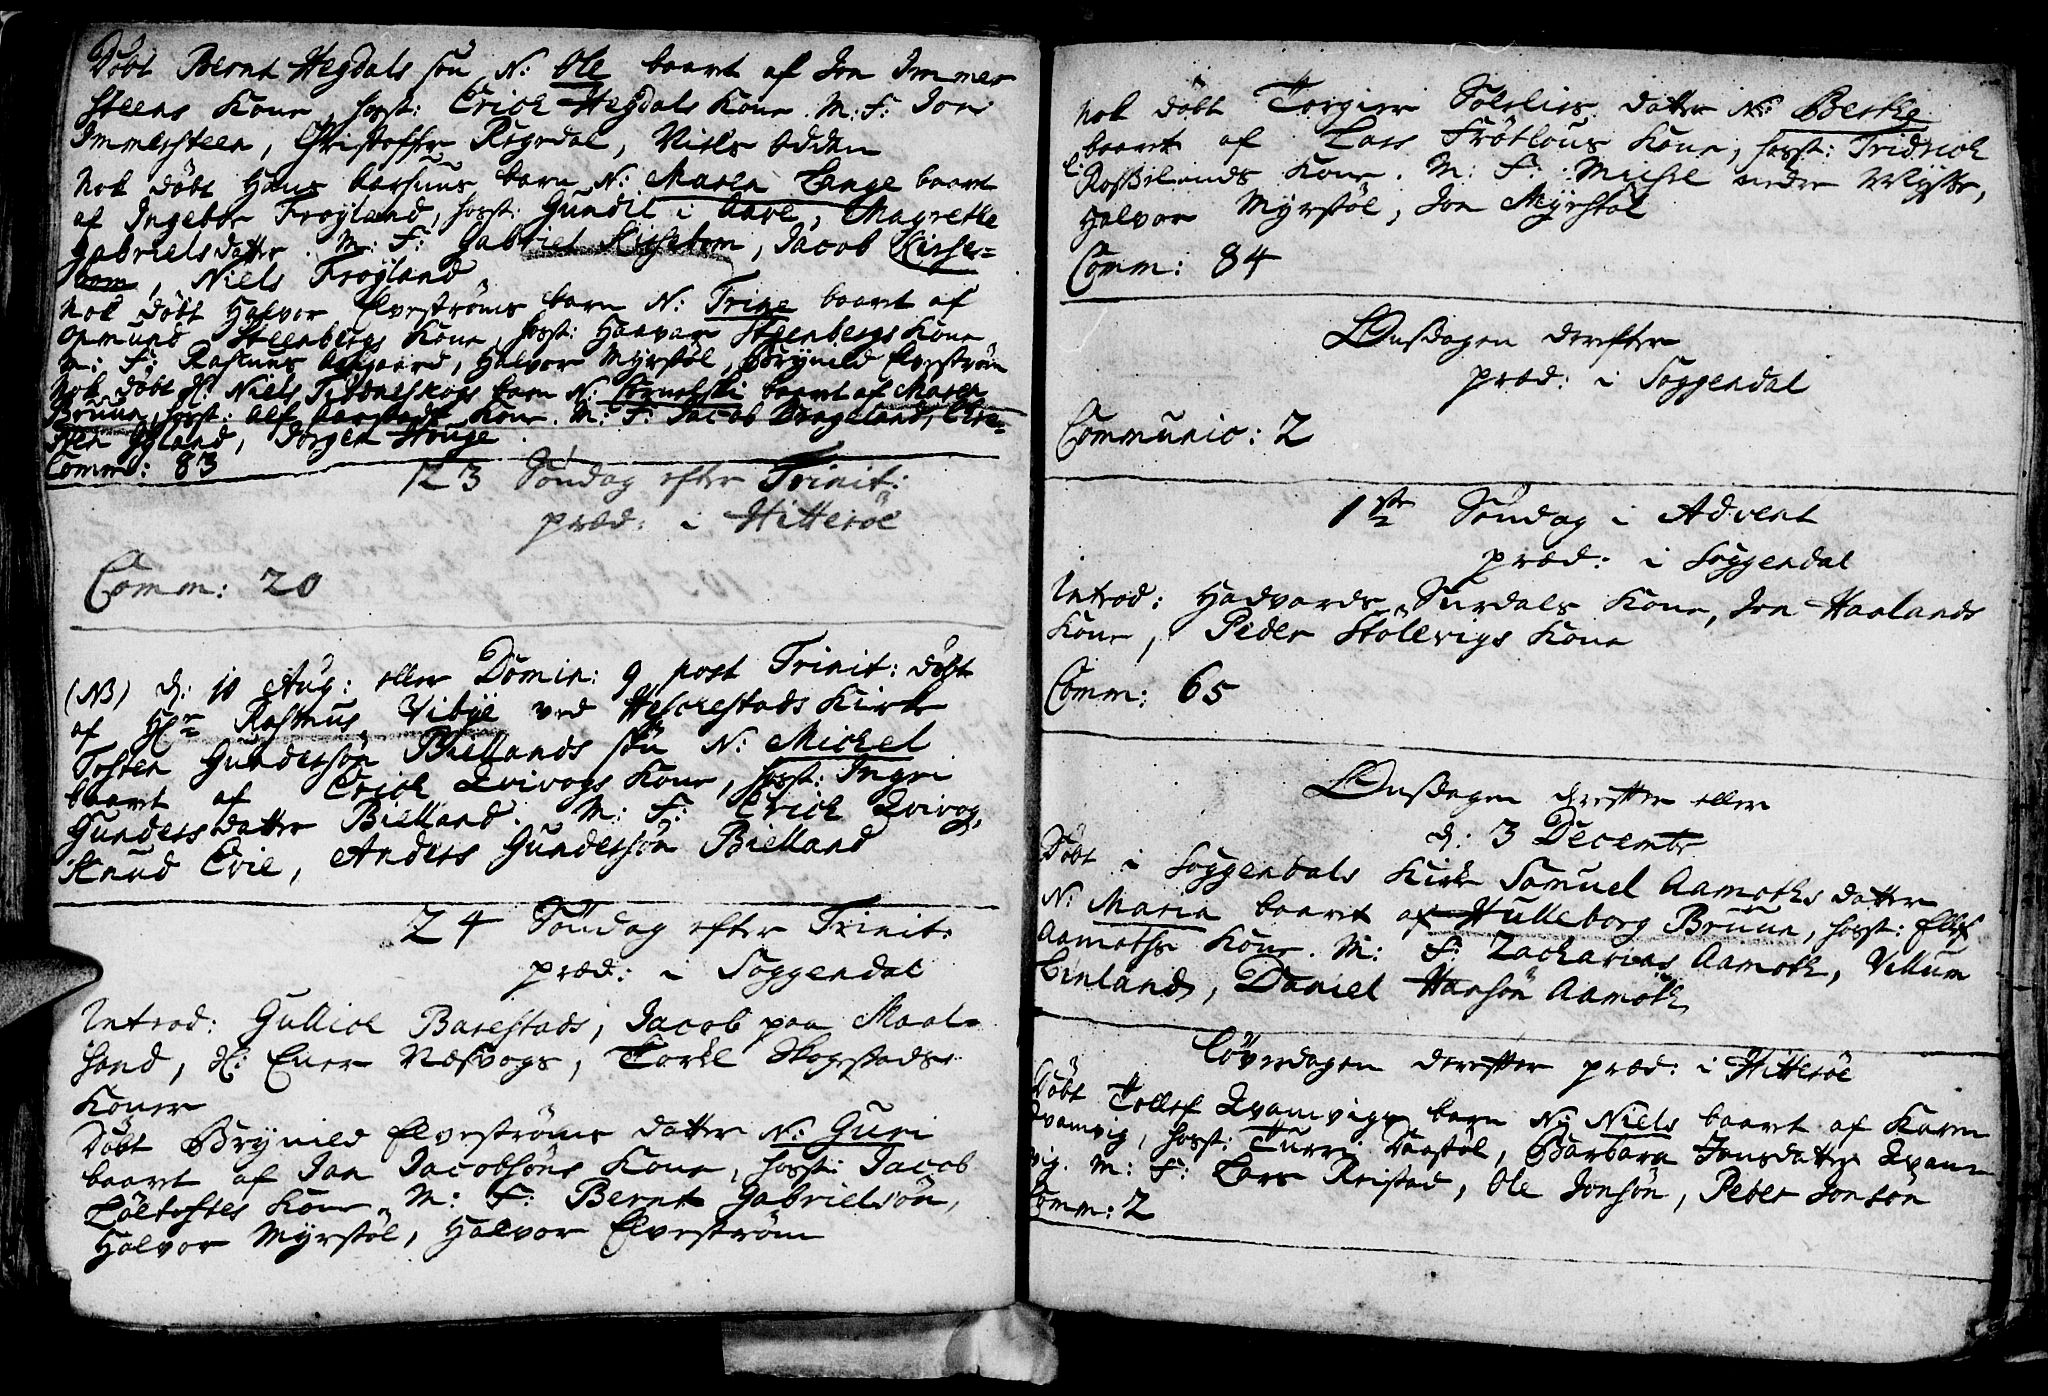 Döbt Bernt Hegdals søn N: Ole baaret af Jon Immer
steens Kone, hosst: Erich Hegdals Kone. M: F: Jon
Immersteen, Christoffer Regedal, Niels Odden
Nok döbt Hans Aarsuns barn N: Maren Lange baaret
af Ingebor Frøyland, hosst: Gundil i Aase, Magrethe
Gabrielsdatter. M: F: Gabriel Kirsebom, Jacob Kirse-
bom, Niels Frøyland
Nok döbt Halvor Elvestrøms barn N: Trine baaret af
Opmund Steenbergs Kone, hosst: Haavar Steenbergs Kone
M: F: Rasmus Aasgaard, Halvor Myrstøl, Brynild Elvestrøm
Nok döbt Hl: Niels barn N: baaret af Maren
Bruun, hosst: Alf Aarstads Kone. M: F: Jacob Birkeland,
Øyland, Jørgen Houge
Comm: 83
23 Søndag efter Trinit:
præd: i Hitterøe
Comm: 20
(NB) d: 10 Aug: eller Domin: 9 post Trinit: döbt
af Hr Rasmus Vibye ved Heschestads Kirke
Tosten Gundersøn Biellands søn N: Michel
baaret af Erich Qvivogs Kone, hosst: Ingri
Gundersdatter Bielland. M: F: Erich Qvivog,
Knud Evie, Anders Gundersøn Bielland
24 Søndag efter Trinit:
præd: i Soggendal
Introd: Gullich Barestads, Jacob paa Maal-
sand, Hl: Ener Næsvogs, Torel Skogestads
Koner
Döbt Brynild Elvestrøms datter N: Guri
baaret af Jan Jacobsøns Kone, hosst: Jacob
Løetoftes Kone. M: F: Bernt Gabrielsøn,
Halvor Myrstøl, Halvor Elvestrøm
Nok döbt Torgier Solelies datter N: Berthe
baaret af Lars Frøtlous Kone, hosst: Fridrich
Rosselands Kone. M: F: Michel nedre Mysse,
Halvor Myrstøl, Jon Myrstøl
Comm: 84
Onsdagen derefter
præd: i Soggendal
Communic: 2
1ste Søndag i Advent
præd: i Soggendal
Introd: Hadvards Surdals Kone, Jon Haalands
Kone, Peder Stølevigs Kone
Comm: 65
Onsdagen derefter eller
d: 3 Decembr
Döbt i Soggendals Kirke Samuel Aamoths datter
N: Maria baaret af Hulleborg Bruun, hosst: Ellef
Aamoths Kone. M: F: Zacharias Aamoth, Villum
Linland, Daniel Hansøn Aamoth
Løverdagen derefter præd: i Hitterøe
Döbt Tollef Qvamvigs barn N: Niels baaret af Karen
Qvamvig, hosst: Turri Vaastøl, Barbara Jonsdatter Qvam
vig. M: F: Lars Reistad, Ole Jonsøn, Peder Jonsøn
Comm: 2